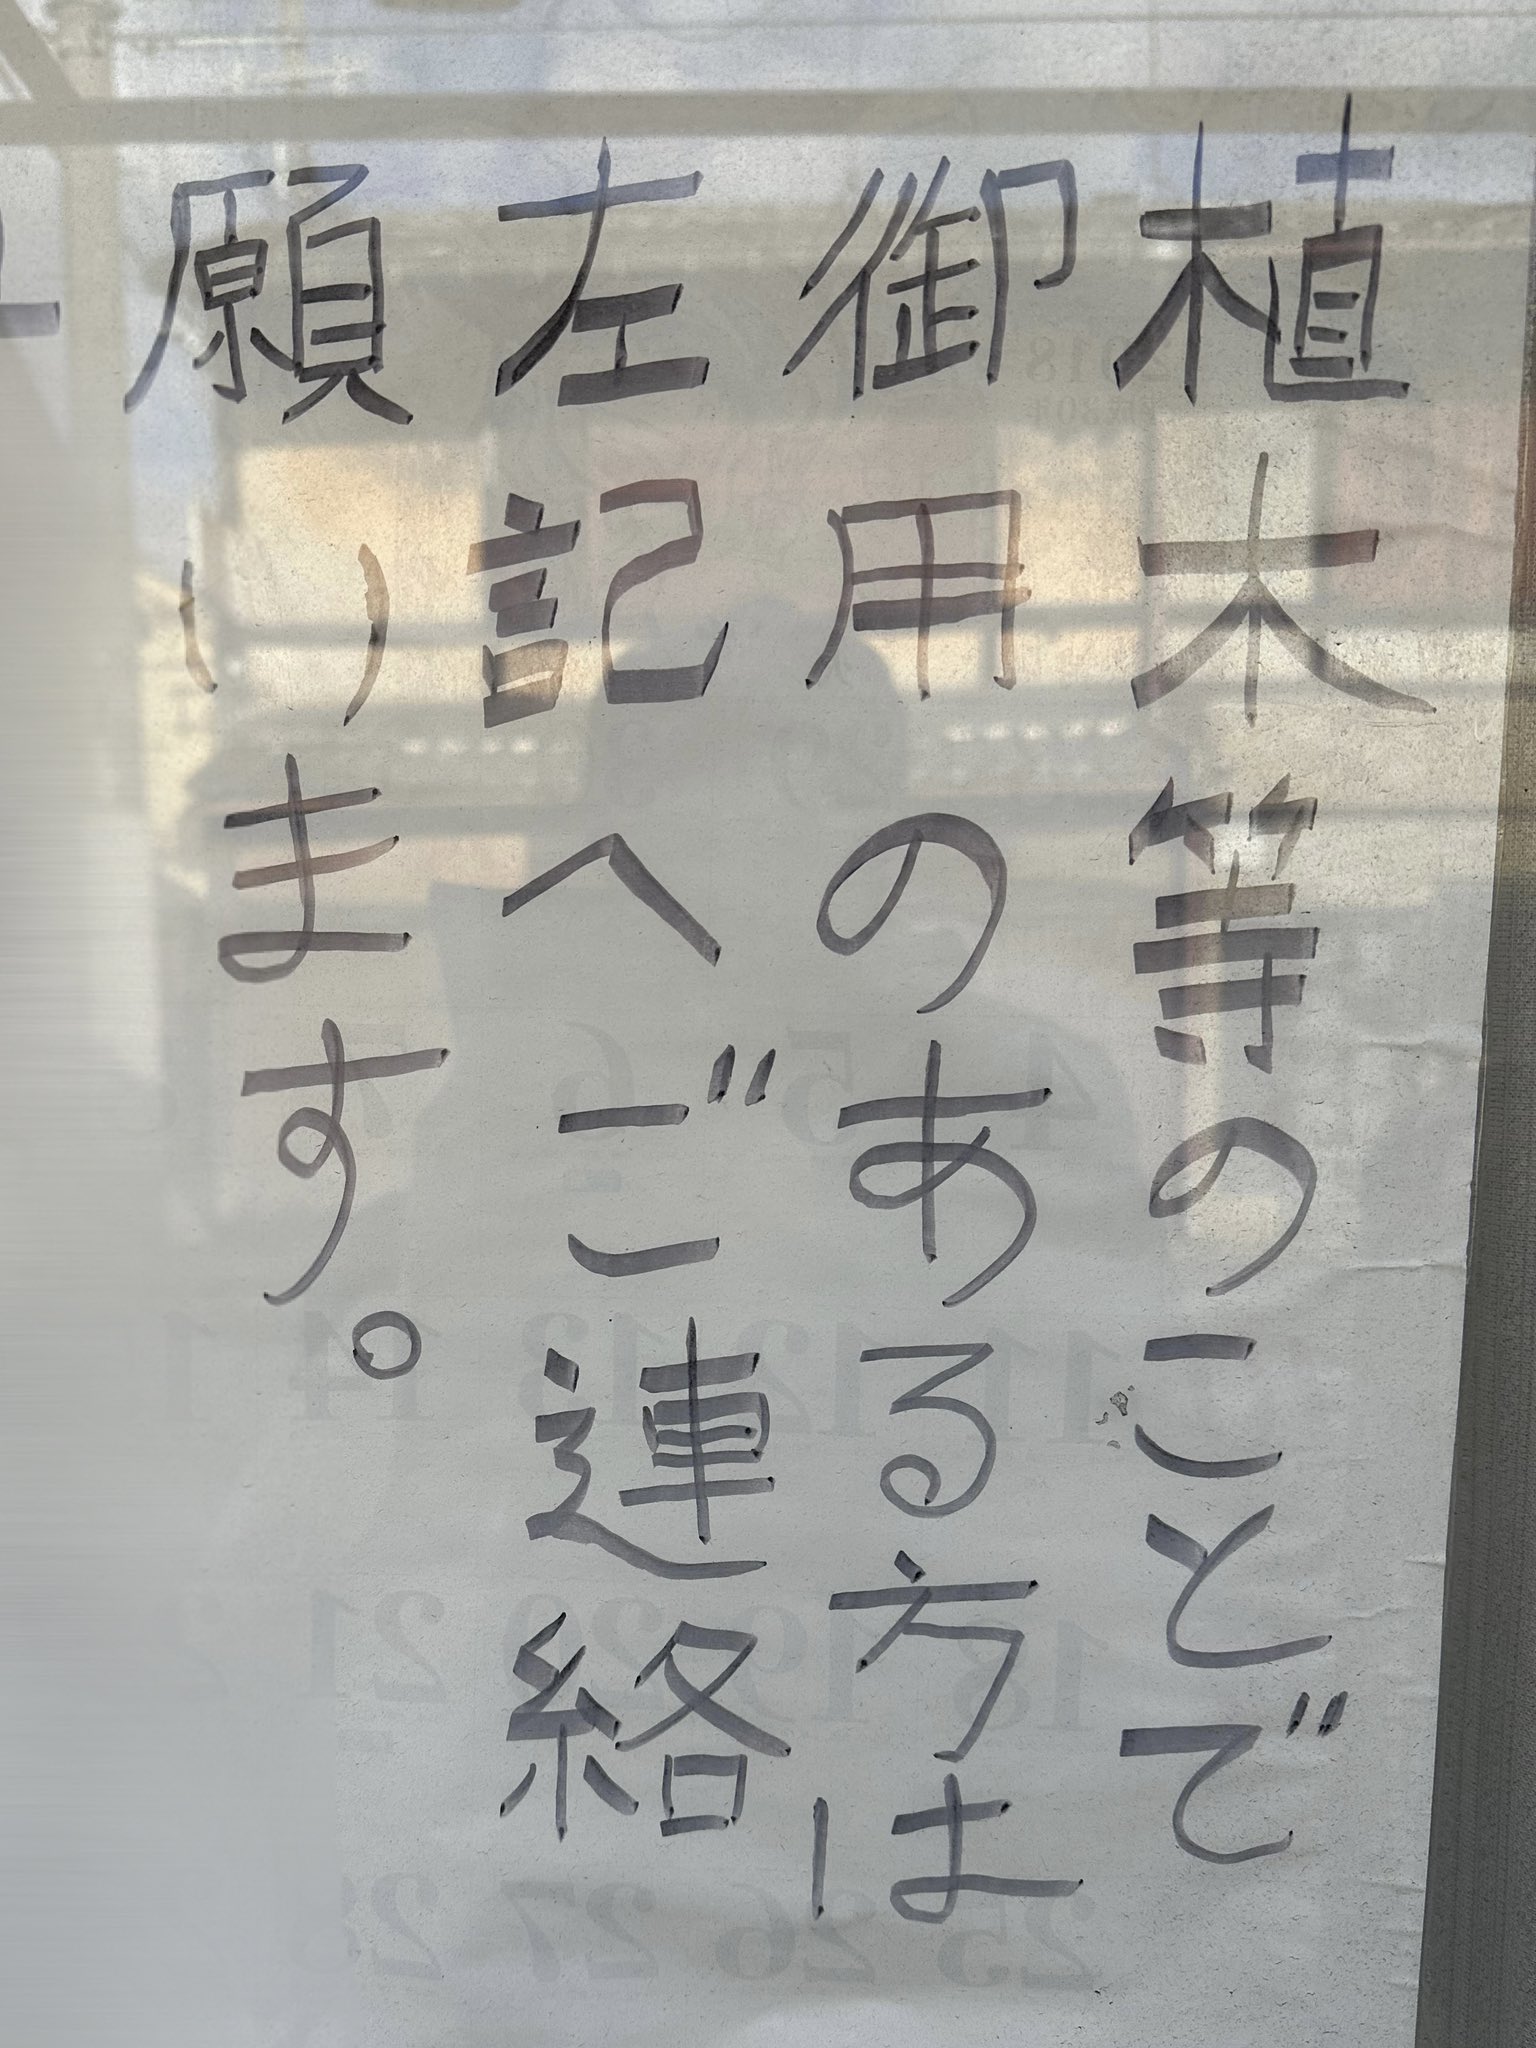 植木等のことで
御用のある方は
左記へご連絡
願います。